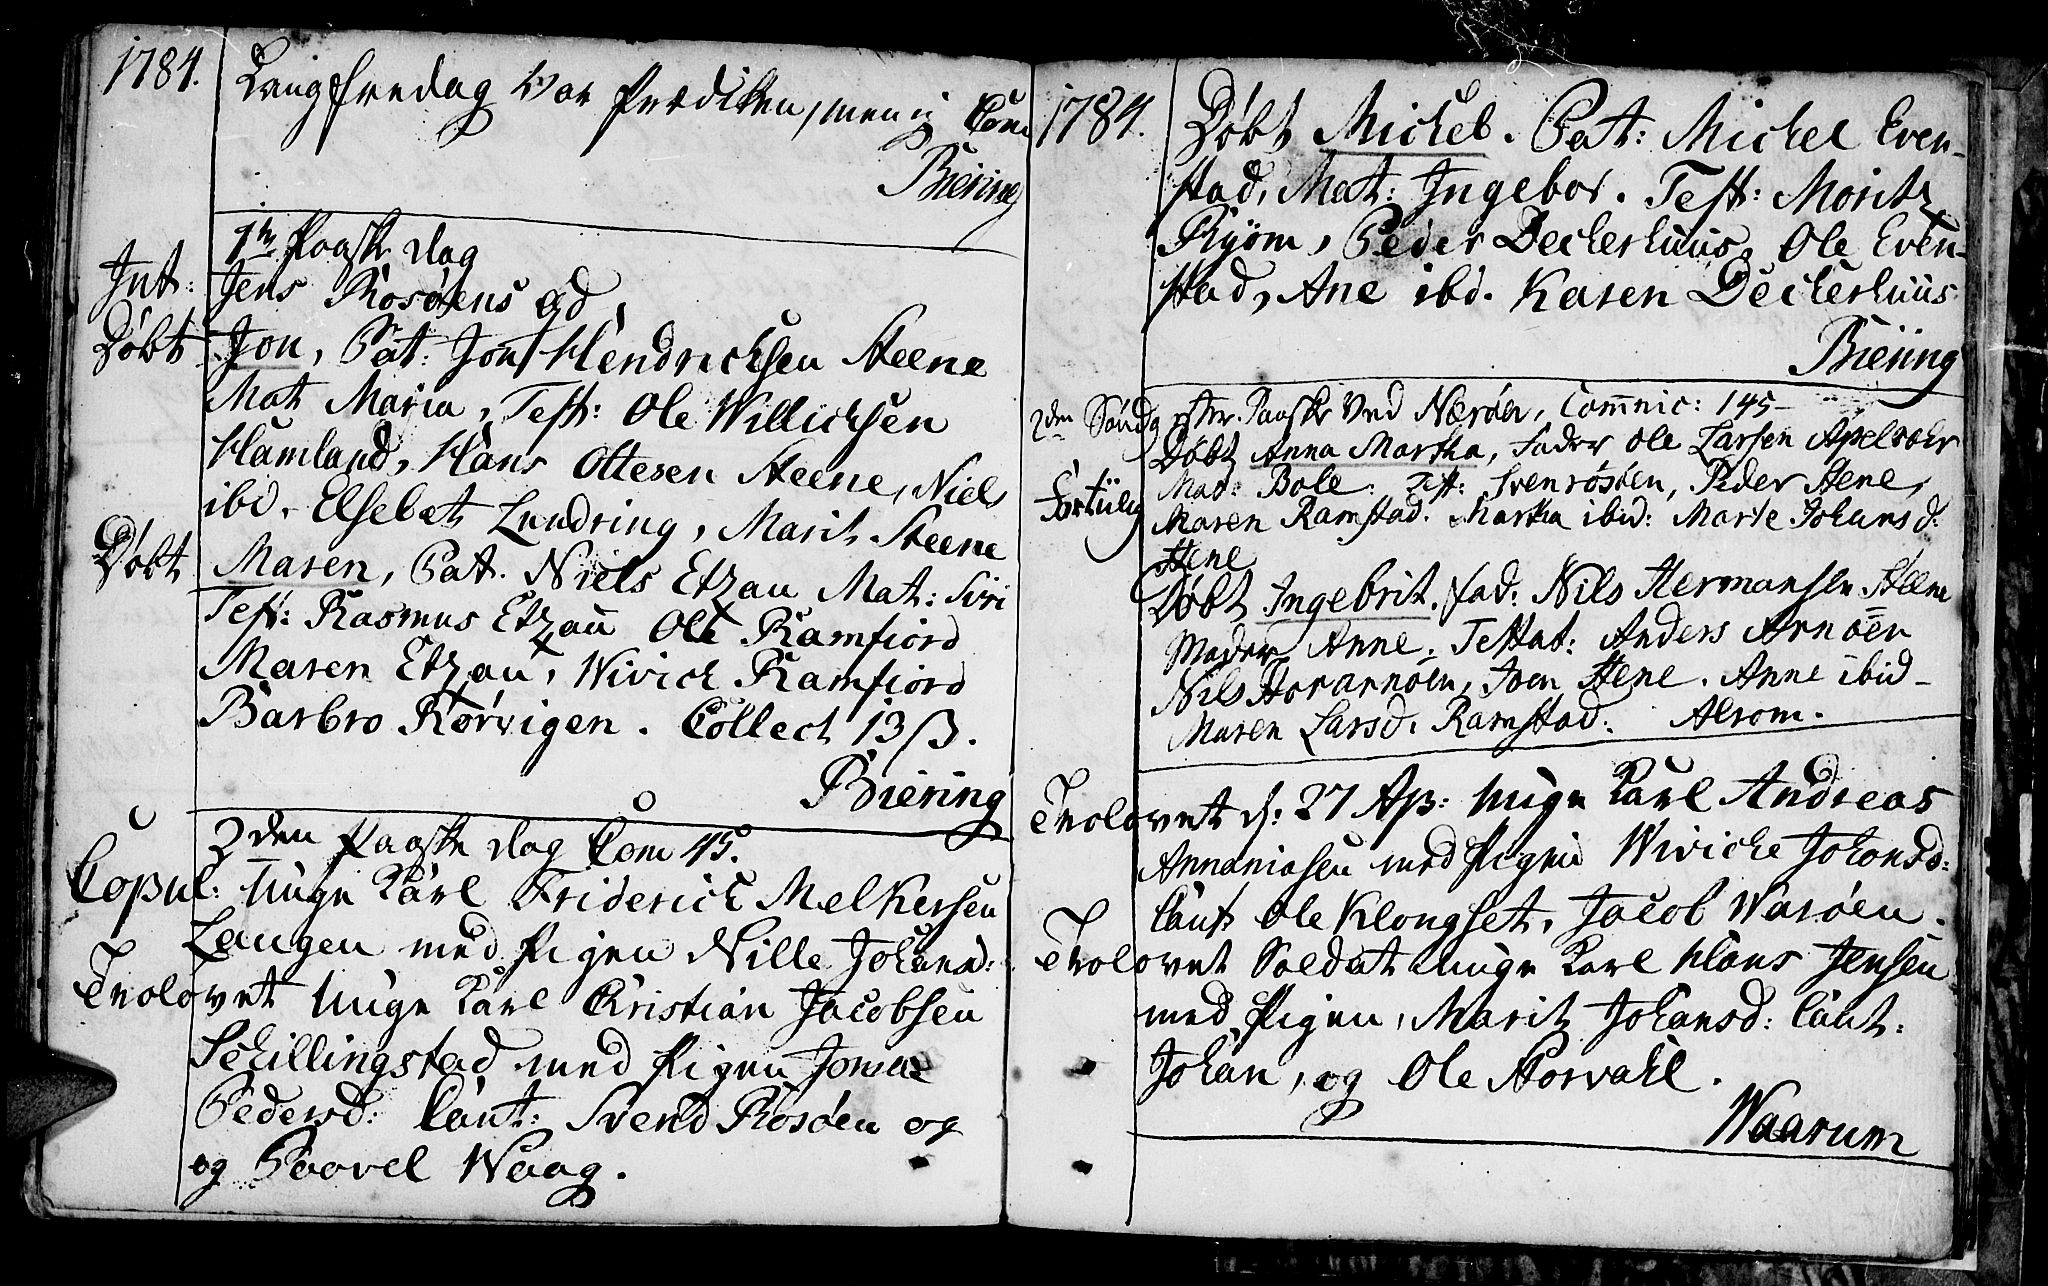 1784.
Langfredag var Prædiken, men ej Com
Biering
1te Paaske dag
Int: Jens Rosøens qd
Døbt Jon, Pat: Jon Hendrichsen Steene
Mat Maria, Test: Ole Willichsen
Hamland, Hans Ottesen Steene, Niels
ibd. Elsebet Lundring, Marit Steene
Døbt Maren, Pat. Niels Etzau Mat: Siri
Test: Rasmus Etzau Ole Ramfiord
Maren Etzau, Wivich Ramfiord
Barbro Rørvigen. Collect 13 β.
Biering
2den Paaske dag Com 45.
Copul: Unge Karl Friderich Melkersen
Langen med Pigen Nille Johansd:
Trolovet Unge Karl Christian Jacobsen
Schillingstad med Pigen
Pedersd: Caut: Svend Rosøen og
og Paavel Waag.
1784.
Døbt Michel. Pat: Michel Even-
stad, Mat: Ingebor. Test: Moritz
Ryøm, Peder Deckerhuus, Ole Even-
stad, Ane ibd. Karen Deckerhuus
Biering
2den Søndag efter Paaske ved Nærøen, Commnic: 145-
Døbt Anna Martha, Fader Ole Larsen Apelvær
Mod: Bole: Test: Svenrøsøen, Peder Stene,
Maren Ramstad. Martha ibid: Marte Johansd:
Stene
Døbt Ingebrit. fad: Nils Hermansen Steene
Moder Anne. Testat: Anders Arnøen
Nils Horarnøen, Joen Stene. Anne ibid-
Maren Larsd. Ramstad: Alsom.
Trolovet d: 27 Ap: Unge Karl Andreas
Annaniasen med Pigen Wiviche Johansd:
Caut Ole Klongset, Jacob Warøen.
Trolovet Soldat Unge Karl Hans Jensen
med Pigen, Marit Johansd: Caut:
Johan, og Ole Horvahl.
Waarum